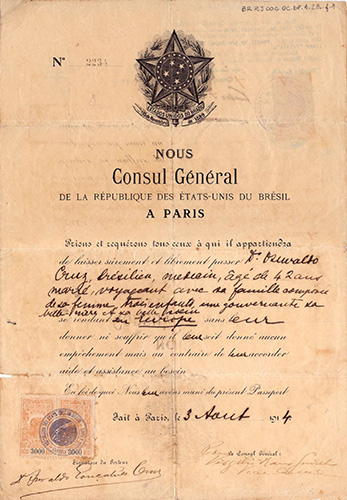 BR RJ COC OC.DP.
Nº 2234
ESTADOS UNIDOS DO BRAZIL
NOUS
Consul Général
DE LA RÉPUBLIQUE DES ÉTATS-UNIS DU BRÉSIL
A PARIS
Prions et requérons tous ceux à qui il appartiendra
de laisser sûrement et librement passer Dr. Oswaldo
Cruz, Brésilien, médecin, âgé de 42 ans
marié, voyageant avec sa famille composée
de sa femme, trois enfants, une gouvernante sa
belle
se rendant en Europe sans leur
donner ni souffrir qu'il leur soit donné aucun
empêchement mais au contraire de leur accorder
aide et assistance au besoin
En foi de quoi Nous leur avons muni du présent Passeport
Fait à Paris, le 3 Aout 1914
3000 3000
Signature du Porteur
Dr. Oswaldo Gonçalves Cruz
Le Consul Général: